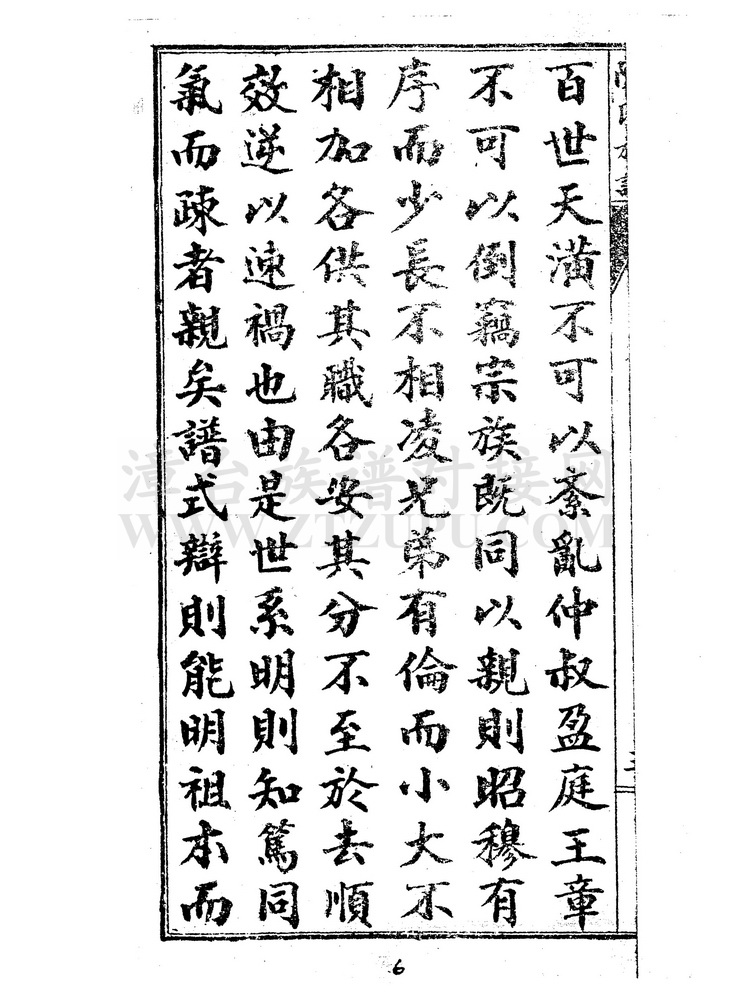 百世天潢不可以紊亂仲叔盈庭王章
不可以倒竊宗族既同以親則昭穆有
序而少長不相凌兄弟有倫而小大不
相加各供其職各安其分不至於去順
效逆以速禍也由是世系明則知篤同
氣而疎者親矣譜式辯則能明祖本而
漳台族谱对接网
WWW.ZTZUPU.COM
6